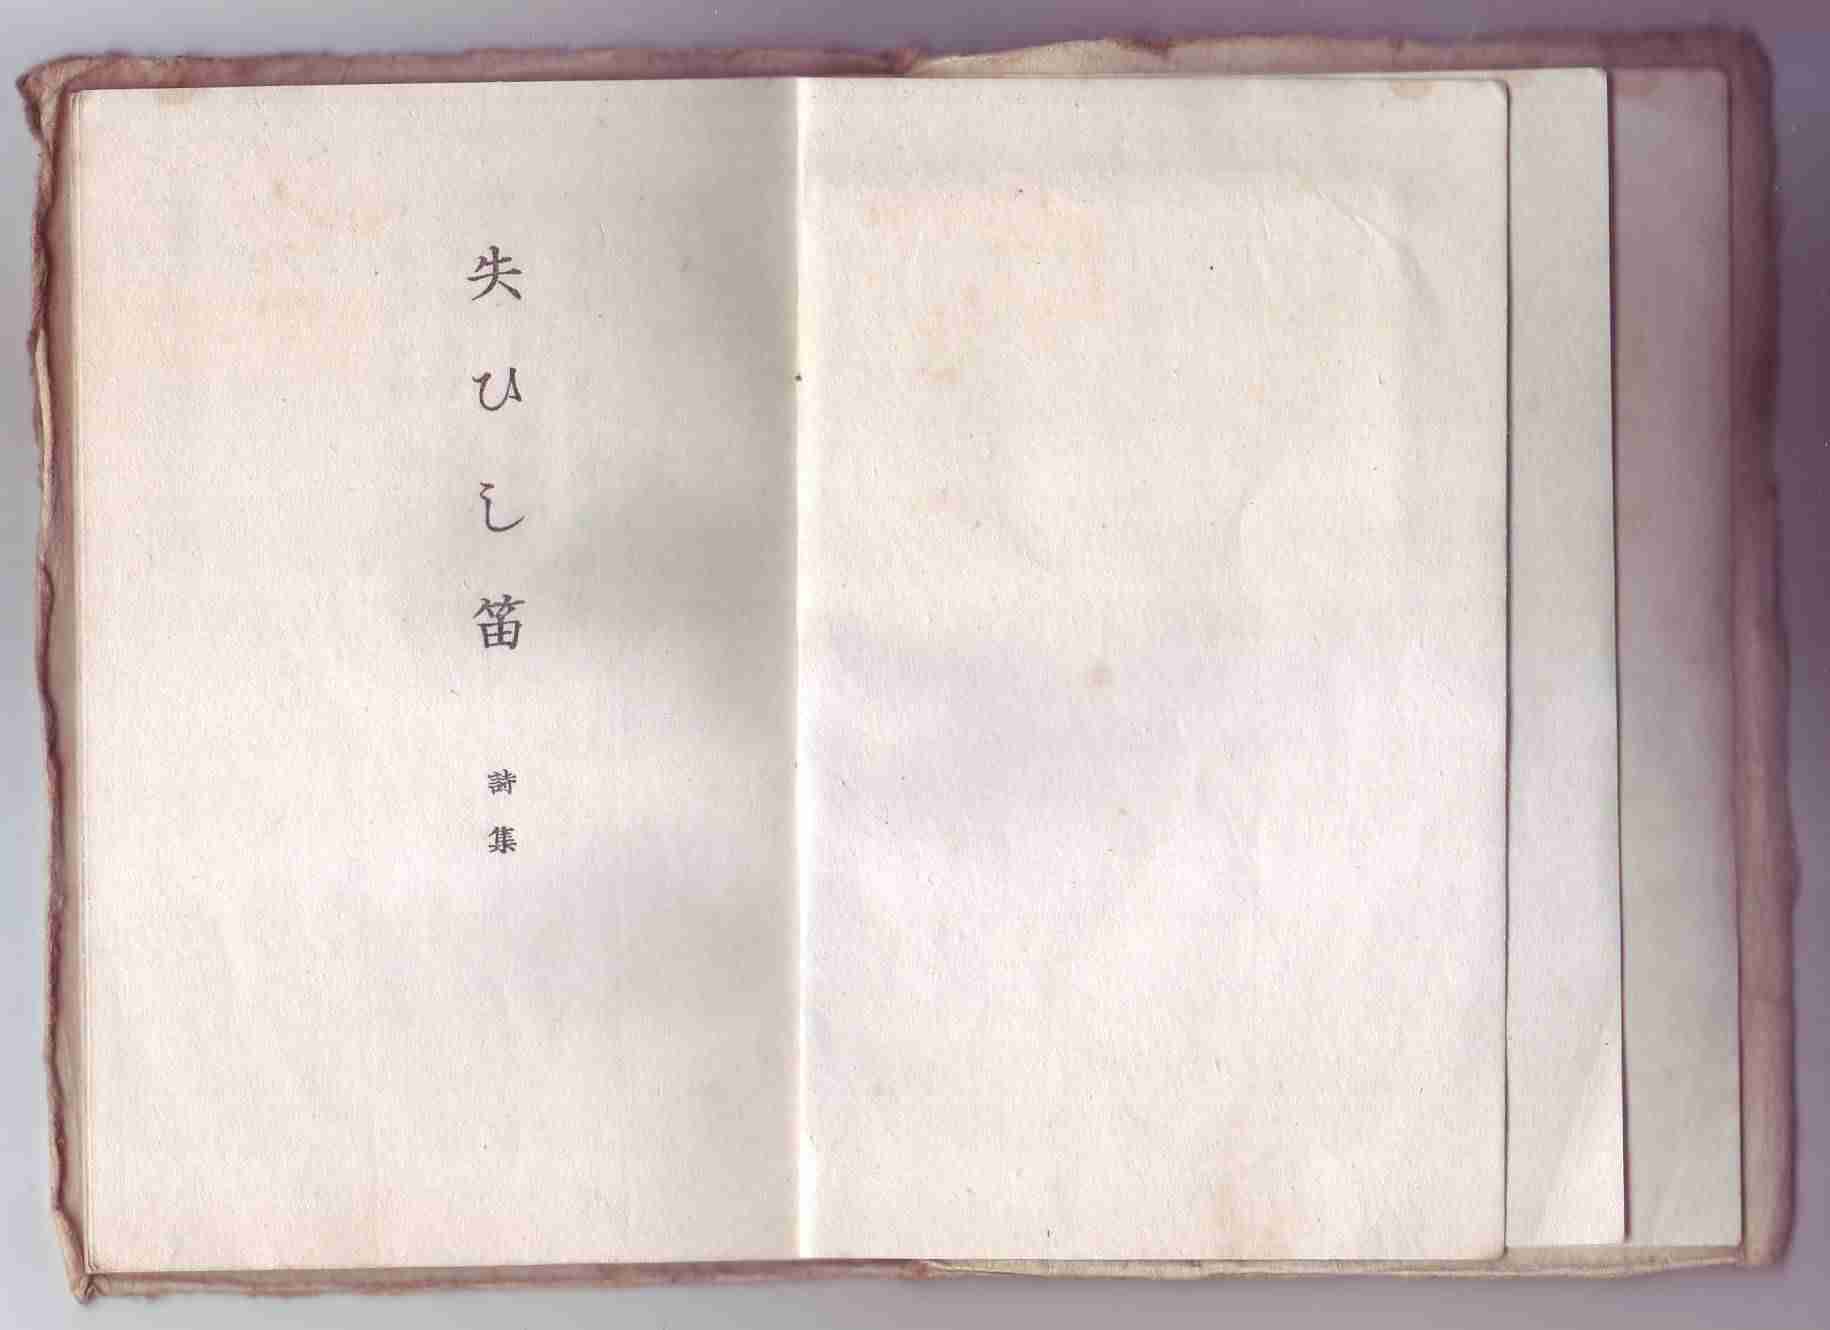 失ひし笛 詩集